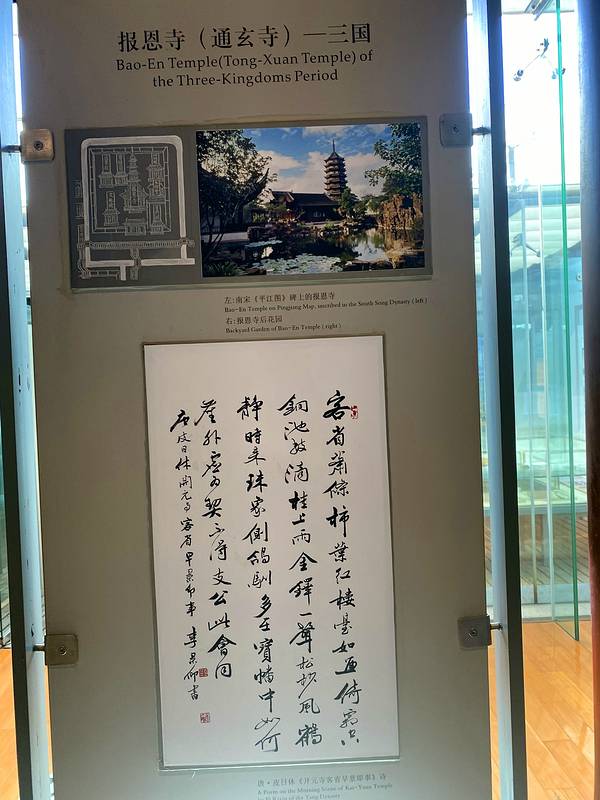 报恩寺（通玄寺）—三国
Bao-En Temple(Tong-Xuan Temple) of
the Three-Kingdoms Period
左:南宋《平江图》碑上的报恩寺
Bao-En Temple on Pingjiang Map, inscribed in the South Song Dynasty ( left )
右:报恩寺后花园
Backyard Garden of Bao-En Temple ( right )
客省蕭條柿葉红樓臺如画倚霜空
銅池数滴桂上雨金鐸一聲松杪风鶴
静時来珠象侧鸽馴多在寶幡中如何
塵外虚为契不得支公此會同
唐皮日休開元寺客省早景即事 李 仰書
唐·皮日休《开元寺客省早景即事》诗
A Poem on the Morning Scene of Kai-Yuan Temple
by Pi Rixiu of the Tang Dynasty